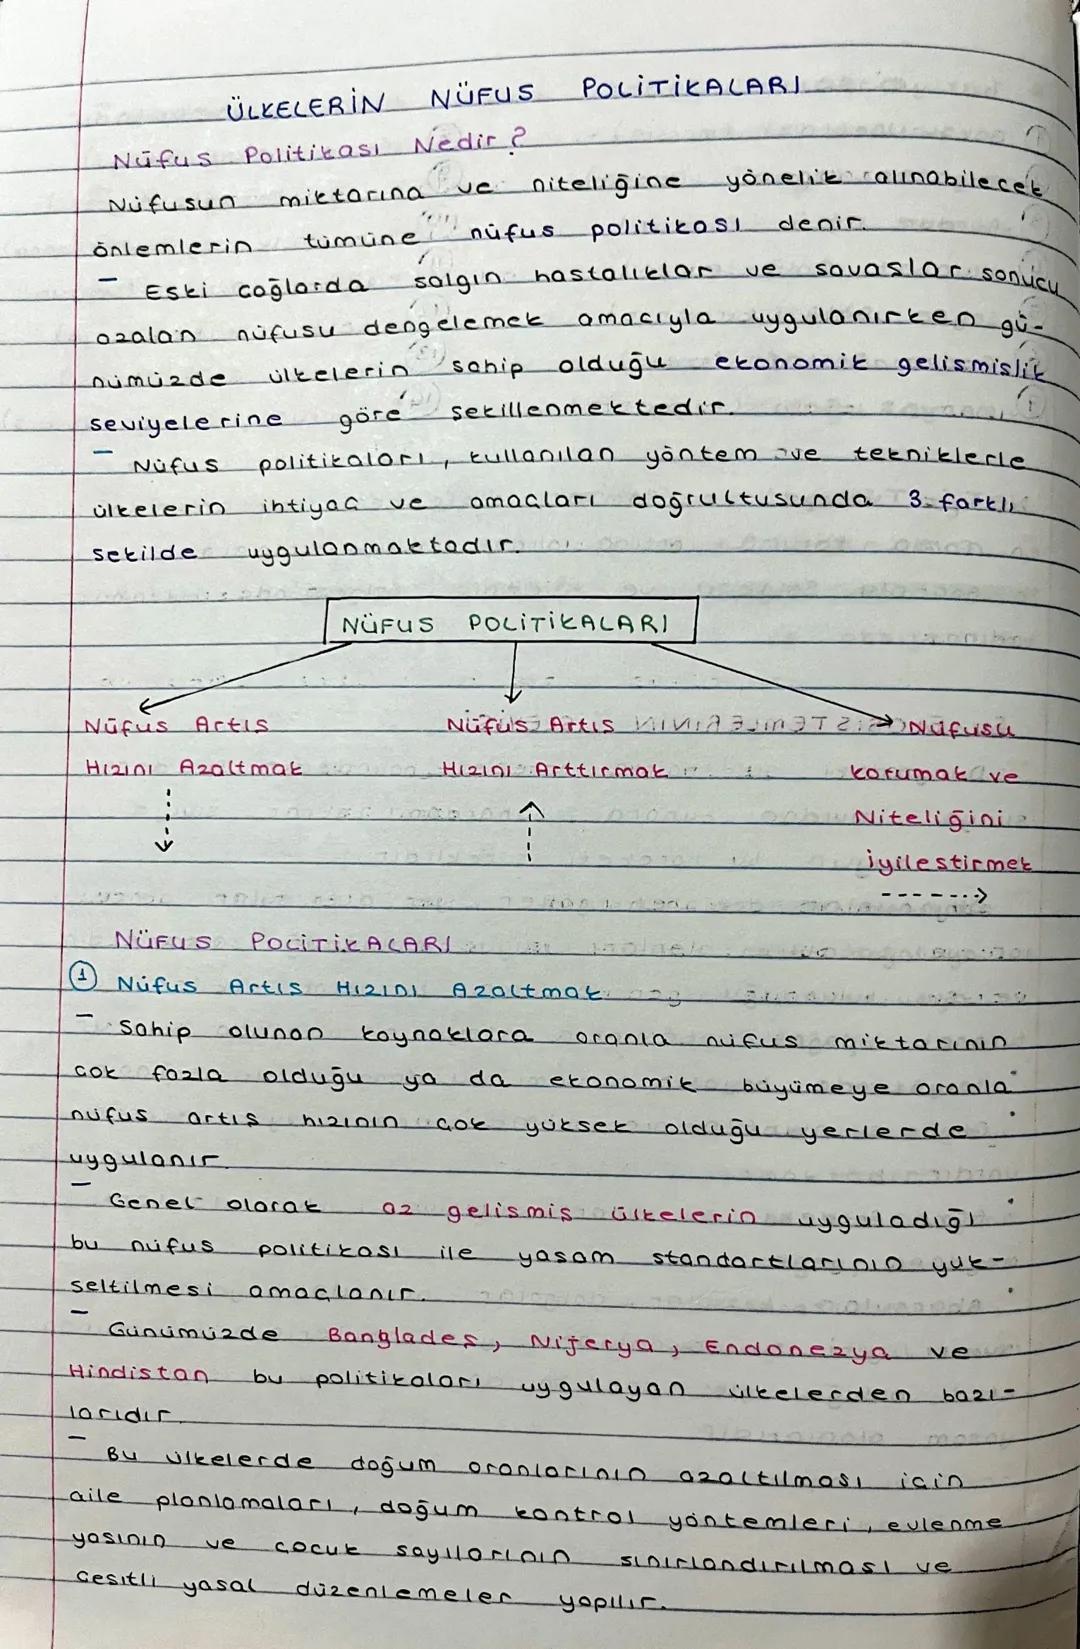 ÜLKELERİN NÜFUS POLİTİKALARI
Nüfus Politikası Nedir?
Nüfusun miktarına ve niteliğine yönelik alınabilecek
önlemlerin tümüne nüfus politikası denir.
- Eski çağlarda salgın hastalıklar ve savaşlar sonucu
azalan nüfusu dengelemek amacıyla uygulanırken gü-
nümüzde ülkelerin sahip olduğu ekonomik gelişmişlik
seviyelerine göre şekillenmektedir.
- Nüfus politikaları, kullanılan yöntem ve tekniklerle
ülkelerin ihtiyaç ve amaçları doğrultusunda 3 farklı
şekilde uygulanmaktadır.
NÜFUS POLİTİKALARI
Nüfus Artış
Hızını Azaltmak
Nüfus Artış
Hızını Arttırmak
Nüfusu
korumak ve
Niteliğini
iyileştirmek
NÜFUS POLİTİKALARI
1 Nüfus Artış Hızını Azaltmak
- Sahip olunan kaynaklara oranla nüfus miktarının
çok fazla olduğu ya da ekonomik büyümeye oranla
nüfus artış hızının çok yüksek olduğu yerlerde
uygulanır.
- Genel olarak az gelişmiş ülkelerin uyguladığı
bu nüfus politikası ile yaşam standartlarının yük-
seltilmesi amaçlanır.
- Günümüzde Bangladeş, Nijerya, Endonezya ve
Hindistan bu politikaları uygulayan ülkelerden bazı-
larıdır.
- Bu ülkelerde doğum oranlarının azaltılması için
aile planlamaları, doğum kontrol yöntemleri, evlenme
yaşının ve çocuk sayılarının sınırlandırılması ve
çeşitli yasal düzenlemeler yapılır.